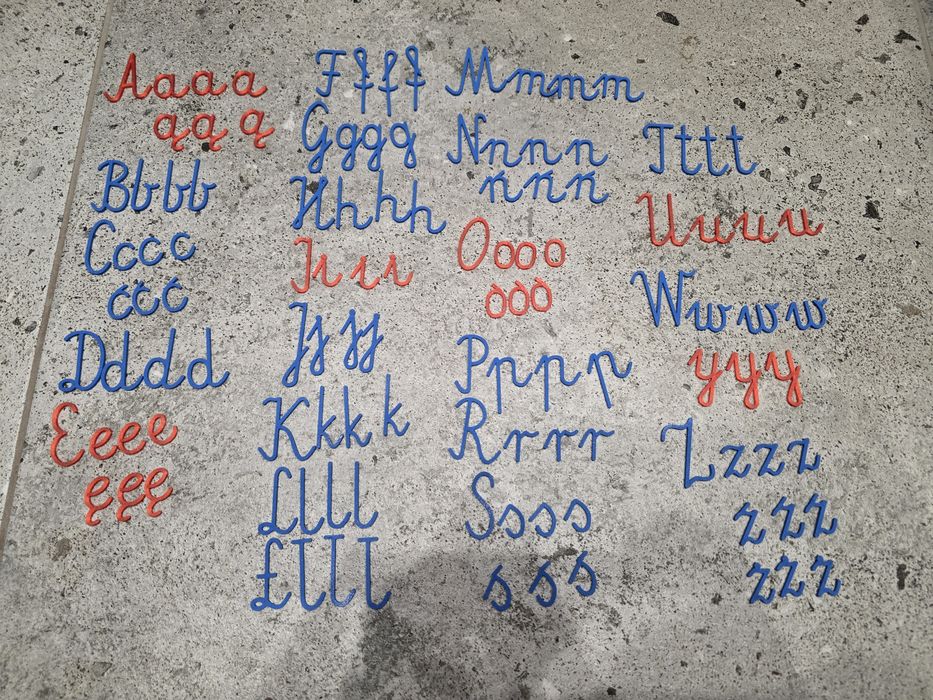 Aaaa
ąąą
Bbbb
Cccc
ććć
Dddd
Eeee
ęęę
Ffff
Gggg
Hhhh
Iııı
Jjjj
Kkkk
Llll
Łłłł
Mmmm
Nnnn
ńńń
Oooo
óóó
Pppp
Rrrr
Ssss
śśś
Tttt
Uuuu
Wwww
yyy
Zzzz
źźź
żżż